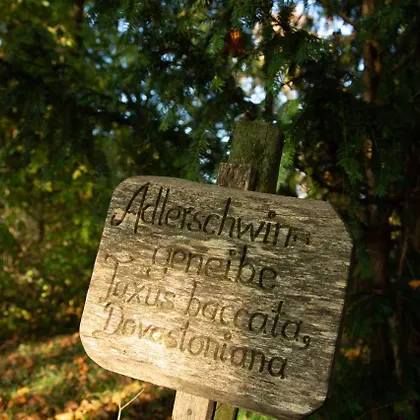 Adlerschwin..
geneibe
Taxus baccata,
Dovastoniana